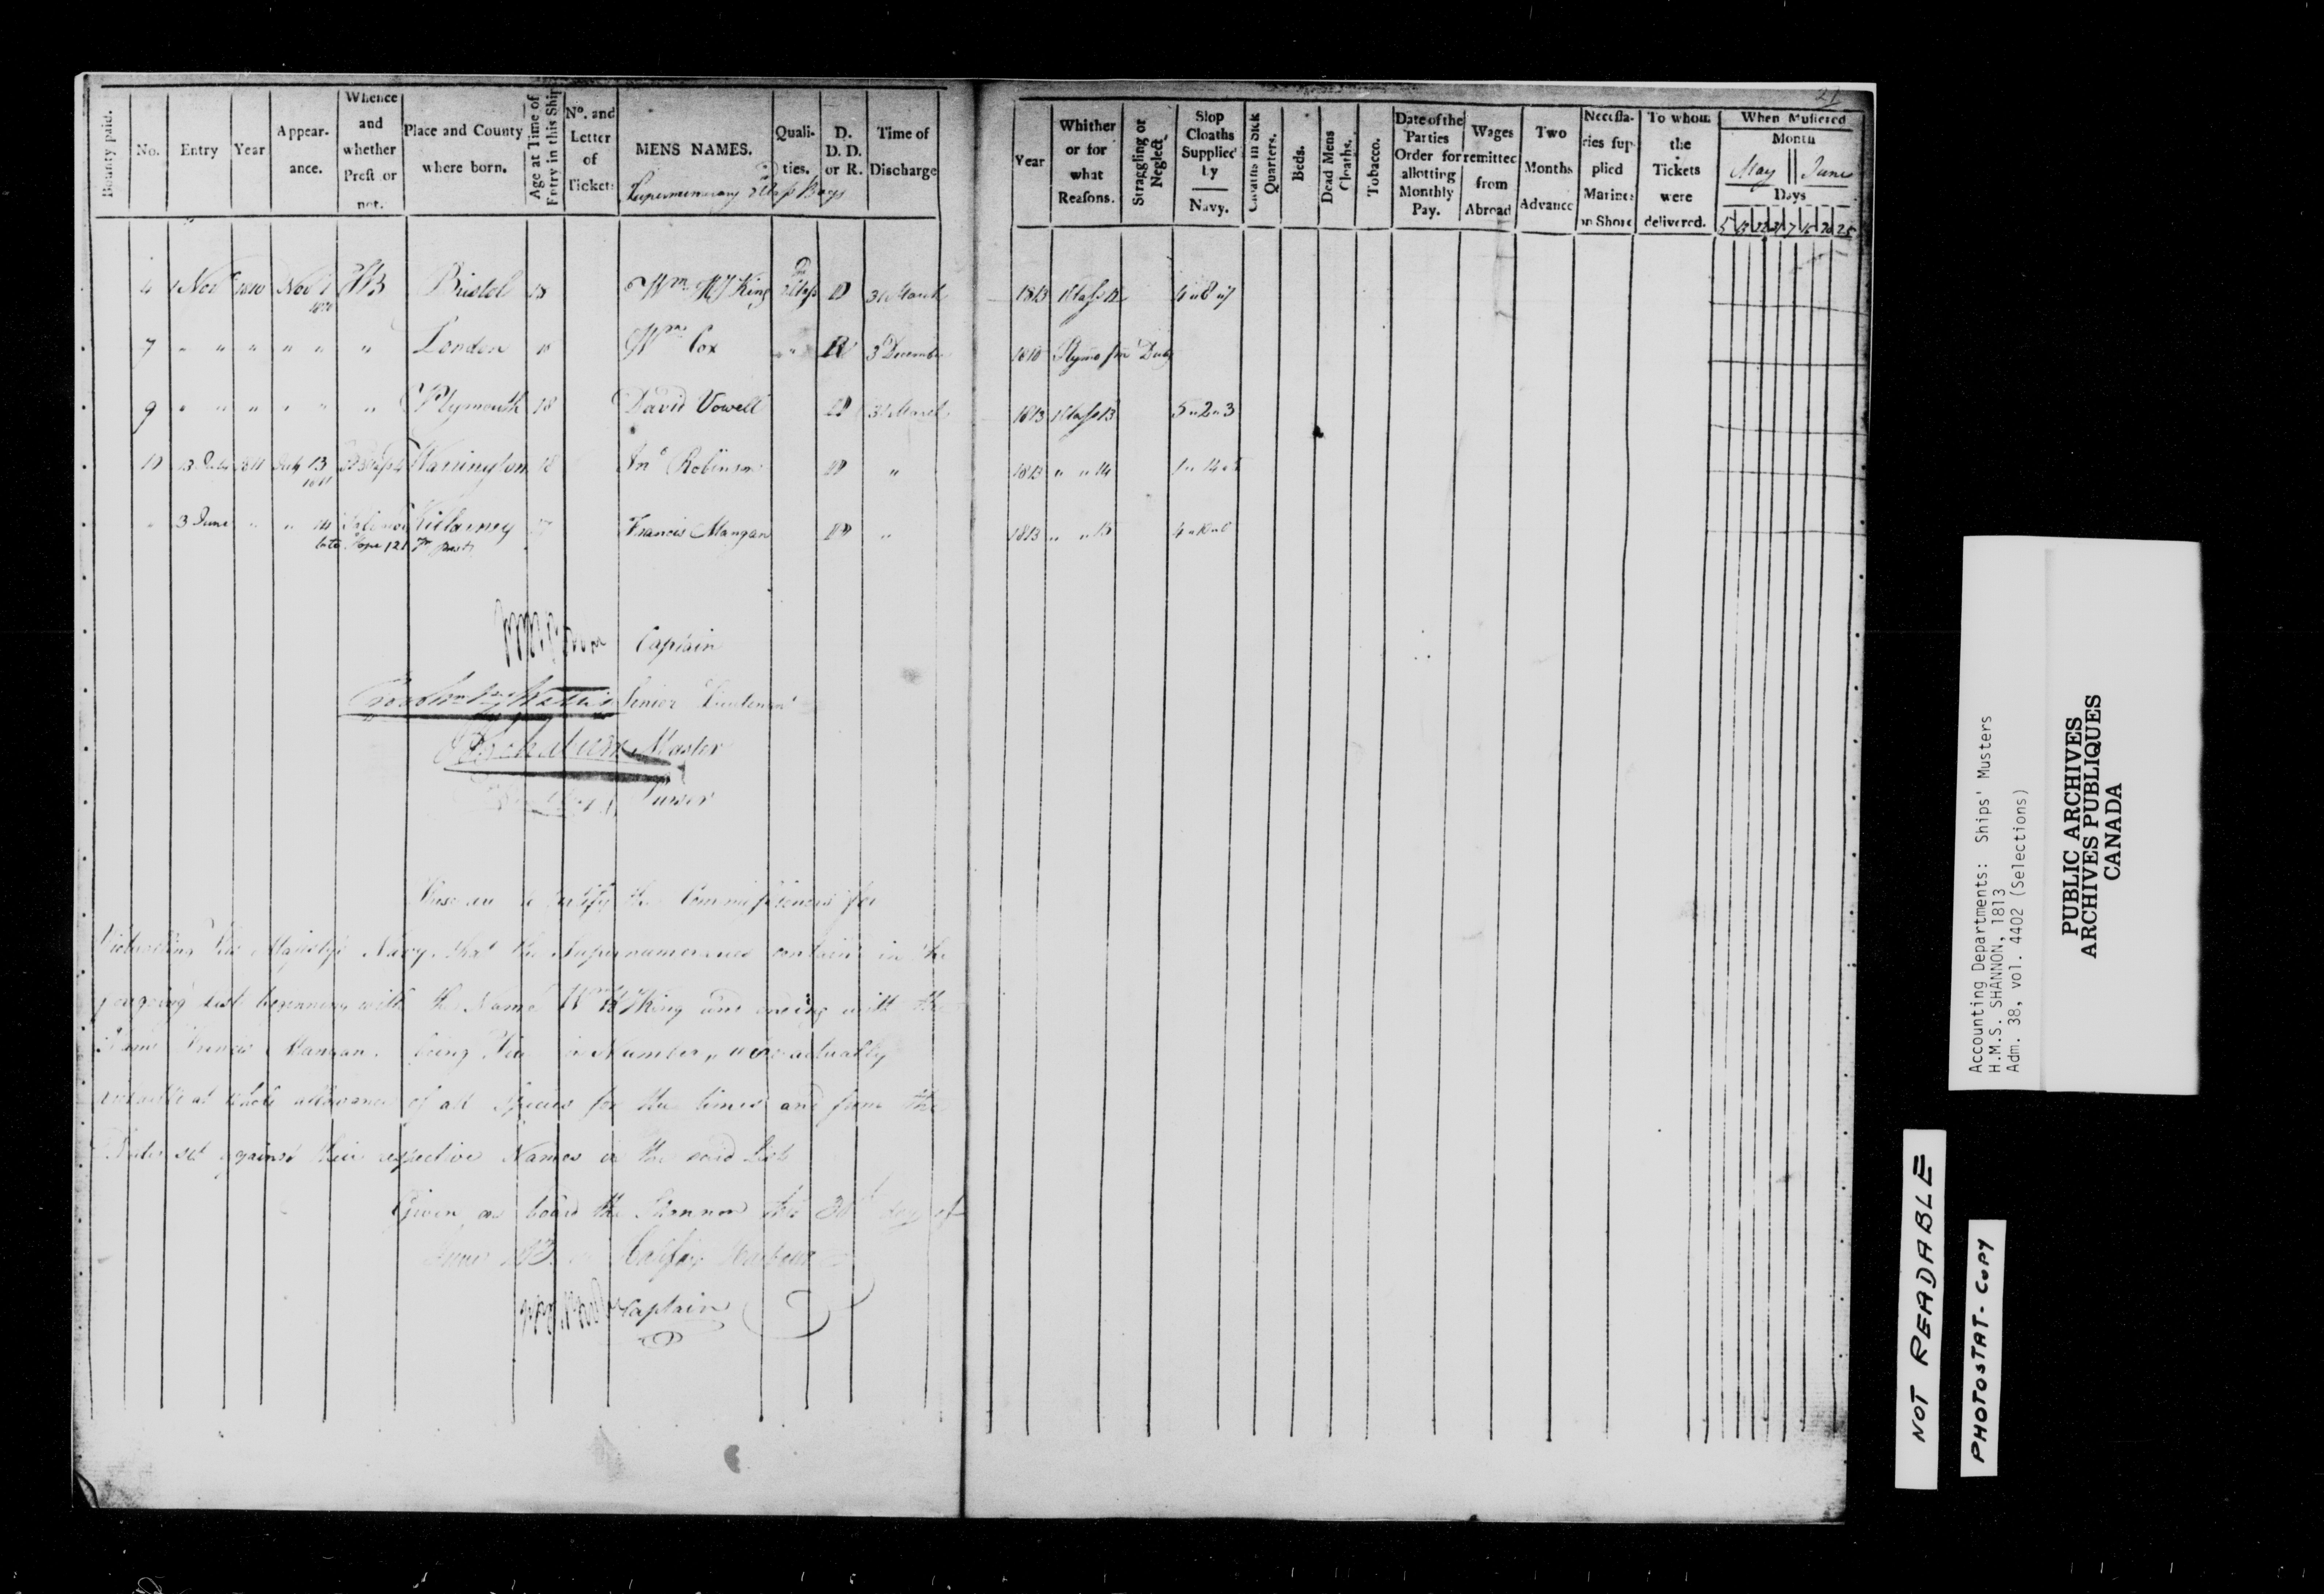 21
Bounty paid.
No.
Entry
Year
Appear-
ance.
Whence
and
whether
Prest or
not.
Place and County
where born.
Age at Time of
Entry in this Ship
No. and
Letter
of
Ticket:
MENS NAMES.
Supernumerary 2d Class Boys
Quali-
ties.
D.
D. D.
or R.
Time of
Discharge
Year
Whither
or for
what
Reasons.
Straggling or
Neglect.
Slop
Cloaths
Supplied
by
Navy.
Cloaths in Sick
Quarters.
Beds.
Dead Mens
Cloaths.
Tobacco.
Date of the
Parties
Order for
allotting
Monthly
Pay.
Wages
remitted
from
Abroad
Two
Months
Advance
Necessa-
ries sup-
plied
Marines
on Shore
To whom
the
Tickets
were
delivered.
When Mustered
Month
May June
Days
4 1 Nov 1810 Nov 1 Bristol 18 Wm King D 31 March 1813 4 " 8 " 7
1810
7 " " " " " " London Wm Cox " 3 December 1810 Plymo
9 " " " " " " Plymouth 18 David Vowell D 31 March 1813 5 " 2 " 3
10 13 July 1811 July 13 Warrington 18 Jno Robinson D " 1813 " " 14
1811
" 3 June " " Killarney Francis Mangan D " 1813 " "
late Hope 121
Captain
Senior Lieutenant
Master
Purser
These are to certify the Commissioners for
Victualling His Majesty's Navy that the Supernumeraries contained in the
foregoing List beginning with the Name Wm King and ending with the
Name Francis Mangan, being Five in Number, were actually
victualled at whole allowance of all Species for the times and from the
Dates set against their respective Names in the said List
Given on board the Shannon this 30th day of
June 1813 in Halifax Harbour
Captain
Accounting Departments: Ships' Musters
H.M.S. SHANNON, 1813
Adm. 38, vol. 4402 (Selections)
PUBLIC ARCHIVES
ARCHIVES PUBLIQUES
CANADA
NOT READABLE
PHOTOSTAT-COPY